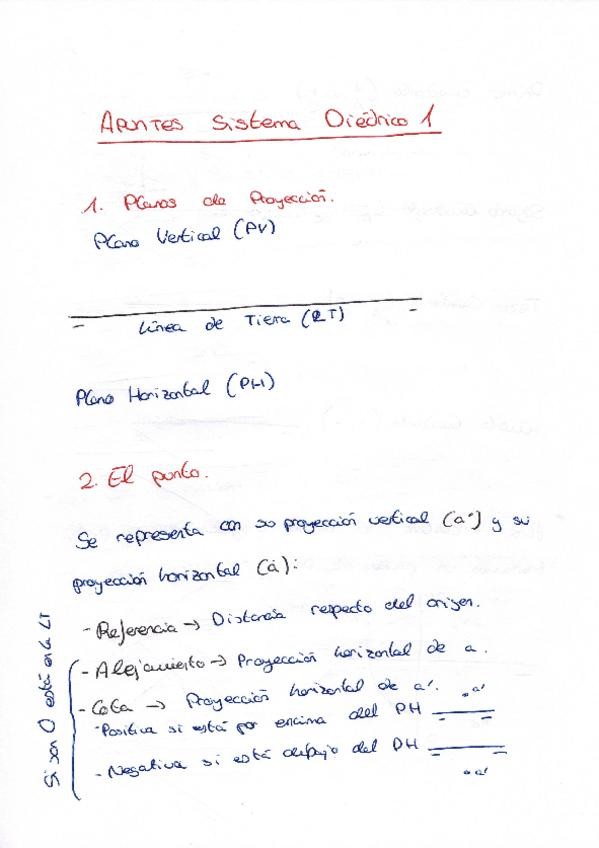 APUNTES Sistema Diédrico 1
1. Planos de Proyección.
Plano Vertical (PV)
Línea de Tierra (LT)
Plano Horizontal (PH)
2. El punto.
Se representa con su proyección vertical (a') y su
proyección horizontal (a):
- Referencia → Distancia respecto del origen.
- Alejamiento → Proyección horizontal de a.
- Cota → Proyección horizontal de a'.
a'
- Positiva si está por encima del PH
- Negativa si está debajo del PH
a'
Si son 0 está en la LT